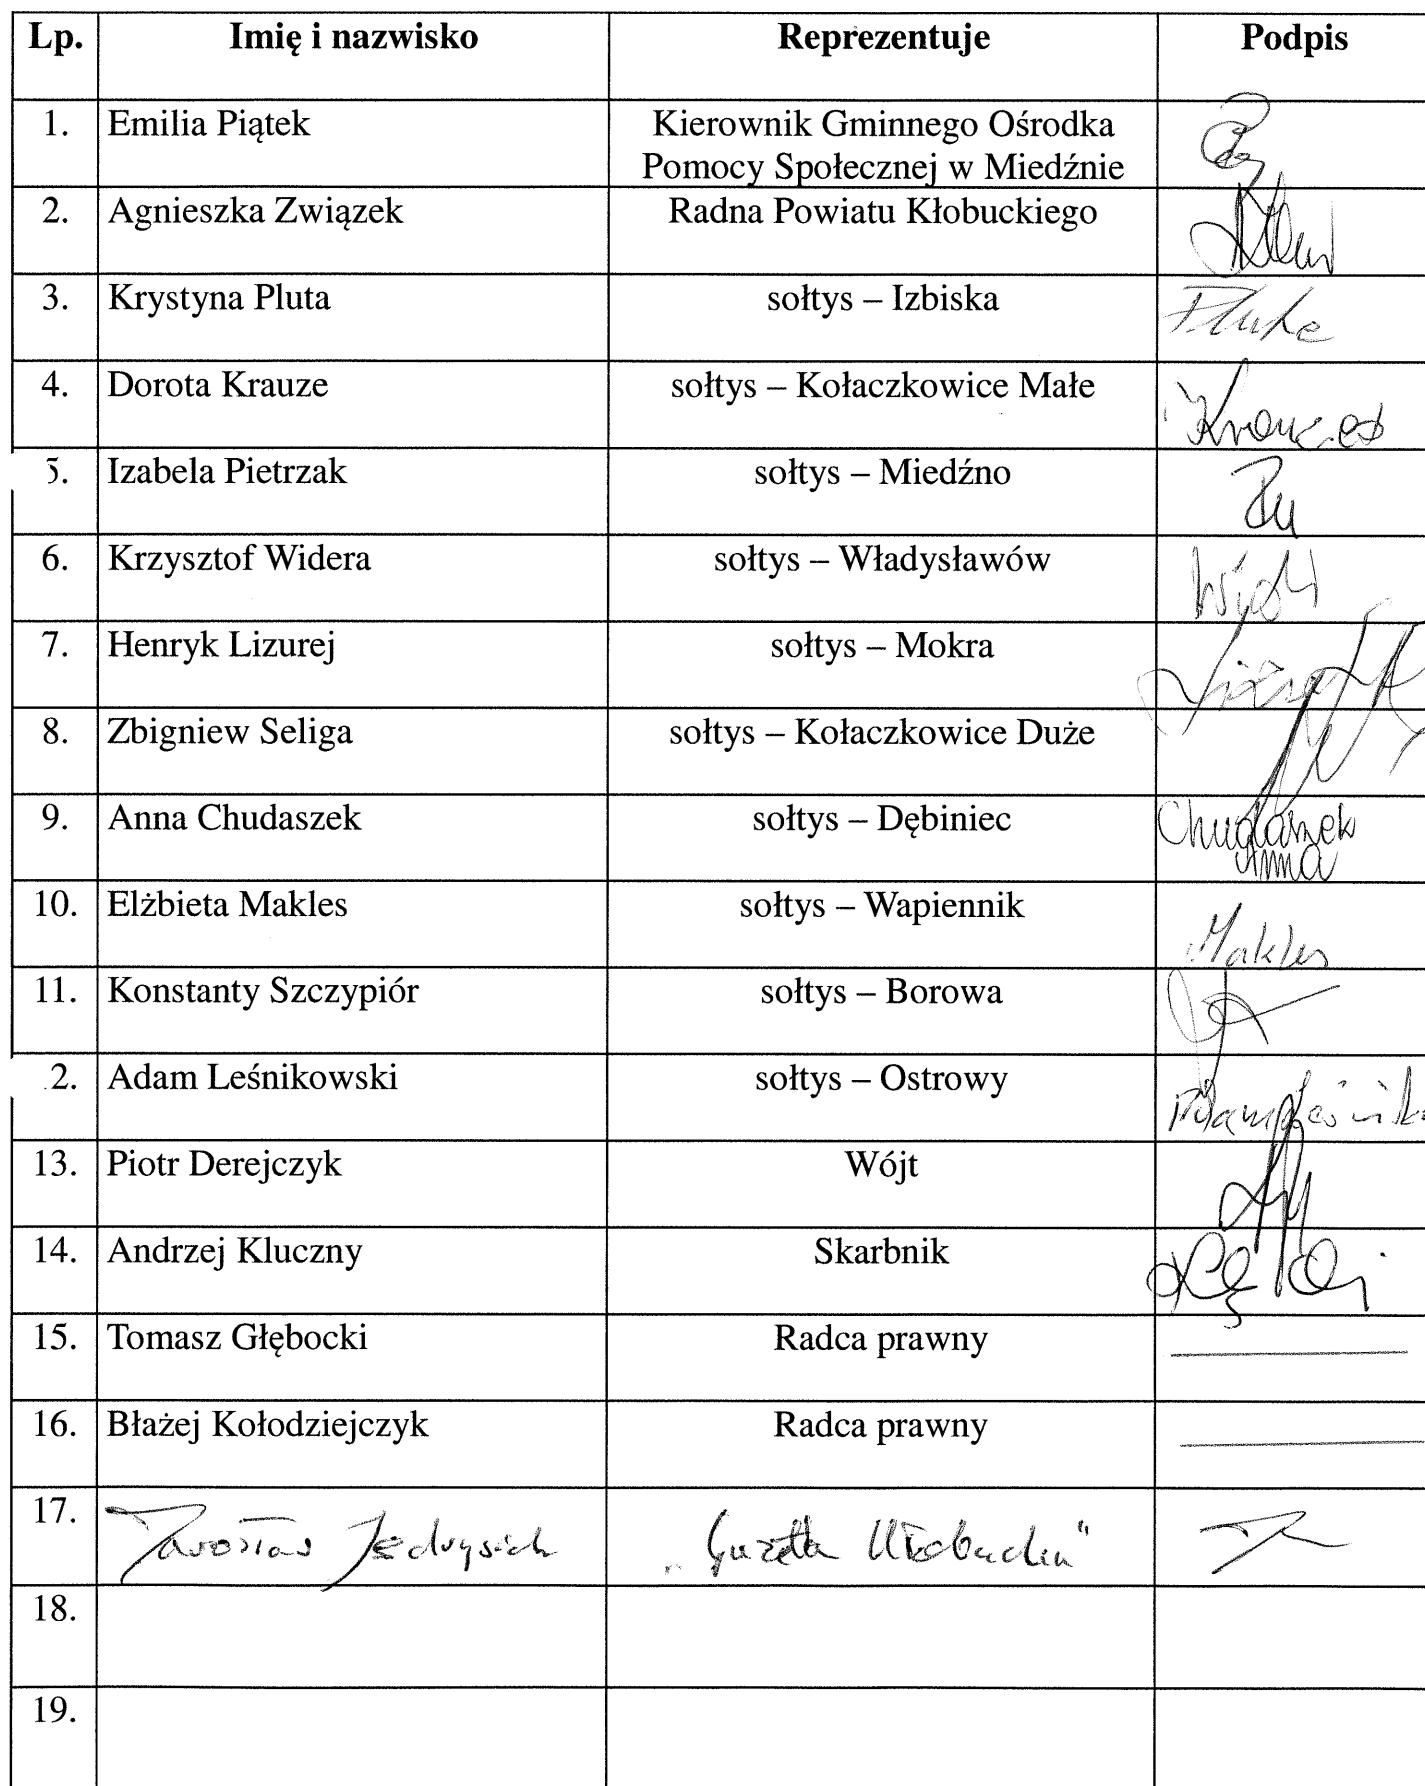 Lp. Imię i nazwisko Reprezentuje Podpis
1. Emilia Piątek Kierownik Gminnego Ośrodka
Pomocy Społecznej w Miedźnie
2. Agnieszka Związek Radna Powiatu Kłobuckiego
3. Krystyna Pluta sołtys – Izbiska Pluta
4. Dorota Krauze sołtys – Kołaczkowice Małe
5. Izabela Pietrzak sołtys – Miedźno
6. Krzysztof Widera sołtys – Władysławów
7. Henryk Lizurej sołtys – Mokra
8. Zbigniew Seliga sołtys – Kołaczkowice Duże
9. Anna Chudaszek sołtys – Dębiniec Chudaszek
Anna
10. Elżbieta Makles sołtys – Wapiennik Makles
11. Konstanty Szczypiór sołtys – Borowa
.2. Adam Leśnikowski sołtys – Ostrowy
13. Piotr Derejczyk Wójt
14. Andrzej Kluczny Skarbnik
15. Tomasz Głębocki Radca prawny
16. Błażej Kołodziejczyk Radca prawny
17. Jarosław Jędrysiak „Gazeta Kłobucka"
18.
19.